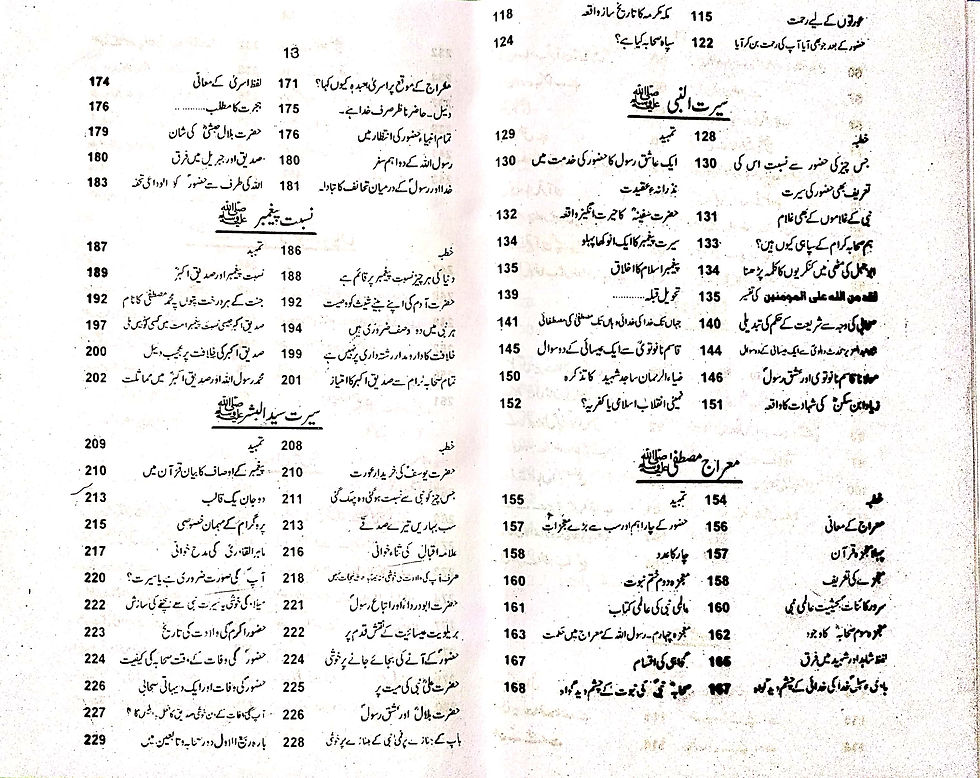 عورتوں کے لیے رحمت 115 مکہ مکرمہ کا تاریخ ساز واقعہ 118
حضور کے بعد جو بھی آیا آپ کی رحمت بن کر آیا 122 سپاہ صحابہ کیا ہے؟ 124
سیرت النبی ﷺ
خطبہ 128 تمہید 129
جس چیز کی حضور سے نسبت اس کی 130 ایک عاشق رسول کا حضور کی خدمت میں 130
تعریف بھی حضور کی سیرت نذرانہ عقیدت
نبی کے غلاموں کے بھی غلام 131 حضرت سفینہؓ کا حیرت انگیز واقعہ 132
ہم صحابہ کرام کے سپاہی کیوں ہیں؟ 133 سیرت پیغمبر کا ایک انوکھا پہلو 134
ابوجہل کی مٹھی میں کنکریوں کا کلمہ پڑھنا 134 پیغمبر اسلام کا اخلاق 135
لقد من الله على المومنين کی تفسیر 135 تحویل قبلہ............ 139
صحابی کی وجہ سے شریعت کے حکم کی تبدیلی 140 جہاں تک خدا کی خدائی وہاں تک مصطفیٰ کی مصطفائی 141
دہلوی سے ایک عیسائی کے دو سوال 144 قاسم نانوتویؒ سے ایک عیسائی کے دو سوال 145
مولانا قاسم نانوتوی اور عشق رسولؐ 146 ضیاء الرحمان ساجد شہید کا تذکرہ 150
زیاد ابن سکنؓ کی شہادت کا واقعہ 151 خمینی انقلاب اسلامی یا کفریہ؟ 152
معراج مصطفیٰ ﷺ
خطبہ 154 تمہید 155
معراج کے معانی 156 حضور کے چار اہم اور سب سے بڑے معجزات 157
پہلا معجزہ قرآن 157 چار کا عدد 158
معجزے کی تعریف 158 معجزہ دوم ختم نبوت 160
سرور کائنات بحیثیت عالمی نبی 160 عالمی نبی کی عالمی کتاب 161
معجزہ سوم صحابہؓ کا وجود 162 معجزہ چہارم۔ رسول اللہ کے معراج میں حکمت 163
لفظ شاہد اور شہید میں فرق 166 گواہی کی اقسام 167
خدا کی خدائی کے چشم دید گواہ 167 صحابہؓ نبیؐ کی نبوت کے چشم دید گواہ 168
13
معراج کے موقع پر اسریٰ بعبدہ کیوں کہا؟ 171 لفظ اسریٰ کے معانی 174
دلیل۔ حاضر ناظر صرف خدا ہے۔ 175 ہجرت کا مطلب............ 176
تمام انبیاء حضور کی انتظار میں 176 حضرت بلال حبشیؓ کی شان 179
رسول اللہ کے دو اہم سفر 180 صدیق اور جبریل میں فرق 180
خدا اور رسولؐ کے درمیان تحائف کا تبادلہ 181 اللہ کی طرف سے حضورؐ کو الوداعی تحفہ 183
نسبت پیغمبر ﷺ
خطبہ 186 تمہید 187
دنیا کی ہر چیز نسبت پیغمبر پر قائم ہے 188 نسبت پیغمبر اور صدیق اکبرؓ 189
حضرت آدم کی اپنے بیٹے شیث کو وصیت 192 جنت کے ہر درخت پتوں پر محمد مصطفیٰ کا نام 192
ہر نبی میں دو وصف ضروری ہیں 194 صدیق اکبر جیسی نسبت پیغمبر امت میں کسی کو نہیں ملی 197
خلافت کا دارومدار رشتہ داری پر نہیں ہے 199 صدیق اکبر کی خلافت پر عجیب دلیل 200
تمام صحابہ کرام سے صدیق اکبر کا امتیاز 201 محمد رسول اللہ اور صدیق اکبرؓ میں مماثلت 202
سیرت سید البشر ﷺ
خطبہ 208 تمہید 209
حضرت یوسف کی خریدار عورت 210 پیغمبر کے اوصاف کا بیان قرآن میں 210
جس چیز کو نبی سے نسبت ہو گئی وہ چمک گئی 211 دو جان یک قالب 213
سب بہاریں تیرے صدقے 213 پروگرام کے مہمان خصوصی 215
علامہ اقبال کی ثناء خوانی 216 ماہر القادری کی مدح خوانی 217
218 آپؐ کی صورت ضروری ہے یا سیرت؟ 220
حضرت ابودرداء اور اتباع رسولؐ 221 میلاد کی خوشی یہ سیرت نبی سے بچنے کی سازش 222
بریلویت عیسائیت کے نقش قدم پر 222 حضور اکرم کی ولادت کی تاریخ 223
حضورؐ کے آنے کی بجائے جانے پر خوشی 224 حضورؐ کی وفات کے وقت صحابہ کی کیفیت 224
حضرت علیؓ نبی کی میت پر 225 حضور کی وفات اور ایک دیہاتی صحابی 226
حضرت بلالؓ اور عشق رسولؐ 226 227
باپ کے جنازے پر غمی نبی کے جنازے پر خوشی 228 بارہ ربیع الاول دور صحابہ و تابعین میں 229